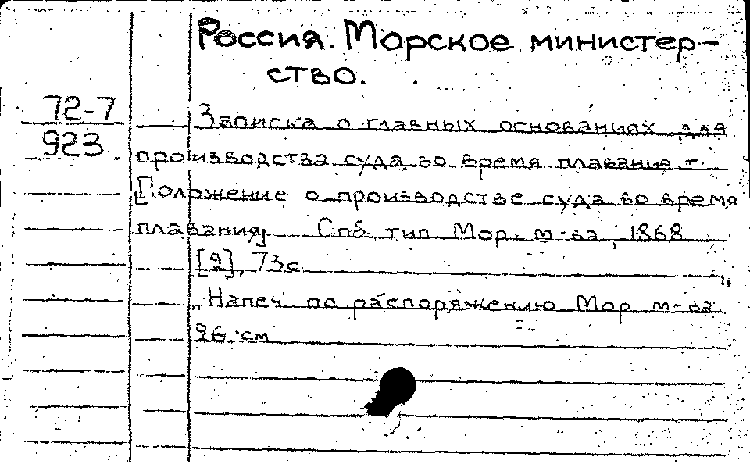 Россия. Морское министер-
ство.
72-7
923
Записка о главных основаниях для
производства суда во время плавание т.
[Положение о производстве суда во время
плавания]. Спб, тип Мор. м-ва, 1868
[2], 73с
"Напеч по распоряжению Мор м-ва"
26 см